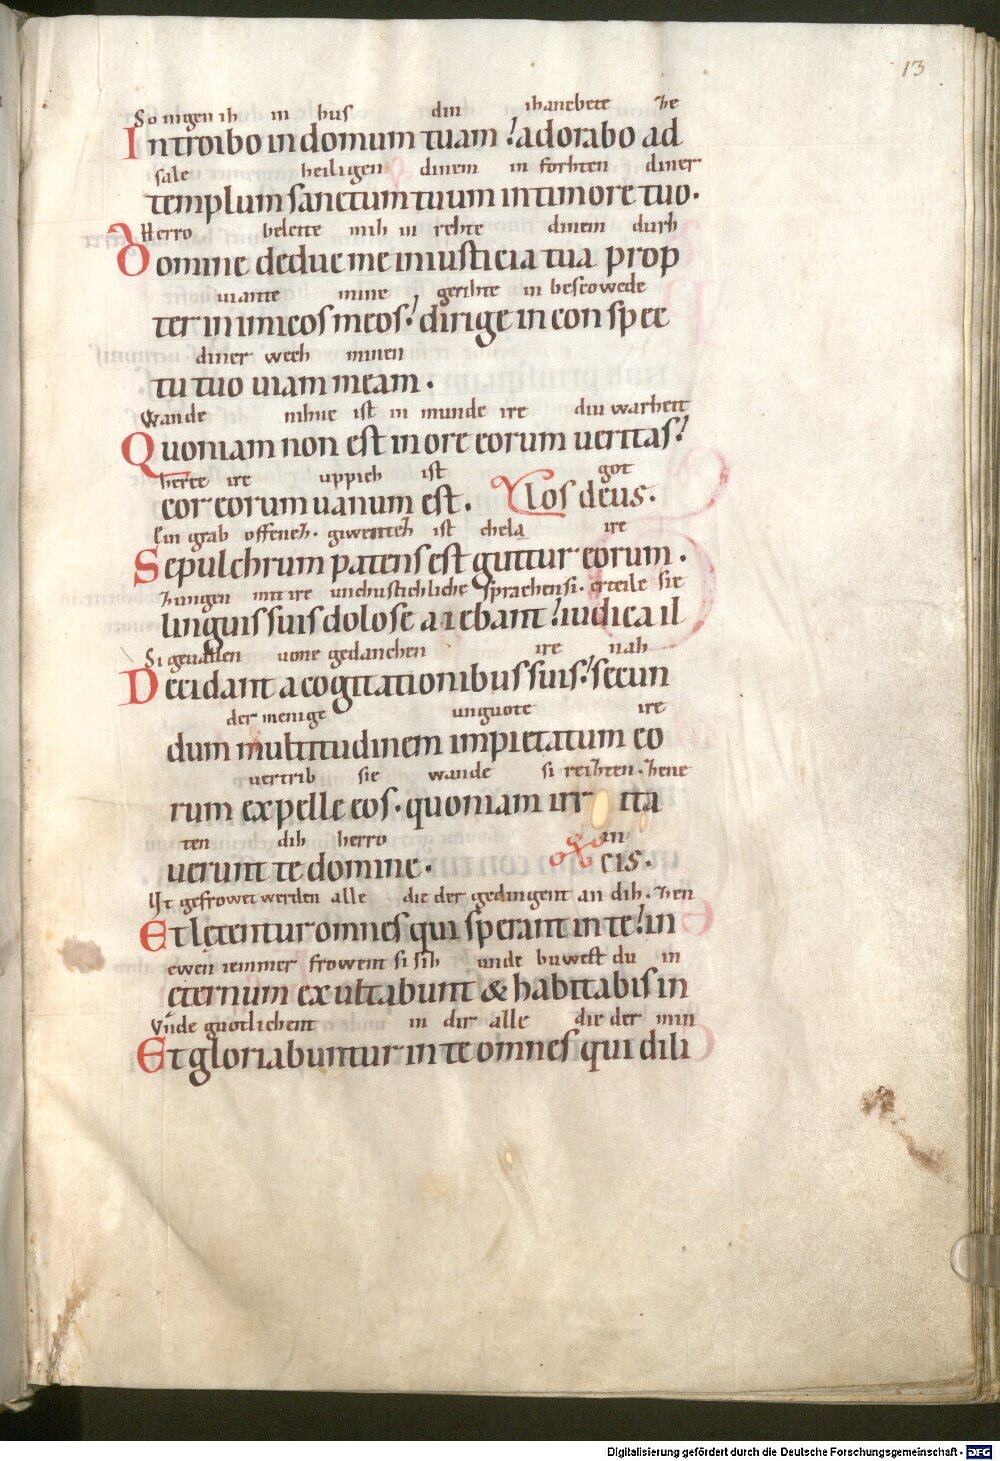 13
So ingen ih in hus din ih anebete ze
Introibo in domum tuam! adorabo ad
sale heiligen dinem in forhten diner
templum sanctum tuum in timore tuo.
Herro beleite mih in rehte dinem durh
Domine deduc me in iusticia tua prop
uiante mine gerihte in bescowede
ter inimicos meos! dirige in conspec
diner wech minen
tu tuo uiam meam.
Wande nihne ist in munde ire diu warheit
Quoniam non est in ore eorum ueritas!
herce ire uppich ist got
cor eorum uanum est. los deus.
Ein grab offenez. giwentez ist chela ire
Sepulchrum patens est guttur eorum.
zungen mit ire unchustichliche sprachen si. erteile sie
linguis suis dolose aiebant! iudica il
Si geuallen uone gedanchen ire nah
Decidant a cogitationibus suis! secun
der menige unguote ire
dum multitudinem impietatum eo
uertrib sie wande si reihten. zene
rum expelle eos. quoniam irrita
ten dih herro in
uerunt te domine. cis.
gefrowet werden alle die der gedingent an dih. zen
Et lętentur omnes qui sperant in te! in
ewen iemmer frowent si sih unde buwest du in
eternum exultabunt & habitabis in
Unde guotlichent in dir alle die der min
Et gloriabuntur in te omnes qui dili
Digitalisierung gefördert durch die Deutsche Forschungsgemeinschaft - DFG